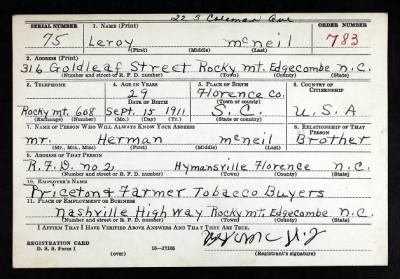 22 S Coleman Ave
SERIAL NUMBER 1. NAME (Print) ORDER NUMBER
75 Leroy McNeil 783
(First) (Middle) (Last)
2. ADDRESS (Print)
316 Goldleaf Street Rocky Mt. Edgecombe N.C.
(Number and street or R. F. D. number) (Town) (County) (State)
3. TELEPHONE 4. AGE IN YEARS 5. PLACE OF BIRTH 6. COUNTRY OF CITIZENSHIP
29 Florence Co.
DATE OF BIRTH (Town or county)
Rocky Mt. 608 Sept. 15 1911 S.C. U.S.A
(Exchange) (Number) (Mo.) (Day) (Yr.) (State or country)
7. NAME OF PERSON WHO WILL ALWAYS KNOW YOUR ADDRESS 8. RELATIONSHIP OF THAT PERSON
Mr. Herman McNeil Brother
(Mr., Mrs., Miss) (First) (Middle) (Last)
9. ADDRESS OF THAT PERSON
R.F.D. No 2 Hymansville Florence N.C.
(Number and street or R. F. D. number) (Town) (County) (State)
10. EMPLOYER'S NAME
Priceton & Farmer Tobacco Buyers
11. PLACE OF EMPLOYMENT OR BUSINESS
Nashville High Way Rocky Mt. Edgecombe N.C.
(Number and street or R. F. D. number) (Town) (County) (State)
I AFFIRM THAT I HAVE VERIFIED ABOVE ANSWERS AND THAT THEY ARE TRUE.
REGISTRATION CARD
D. S. S. Form 1 16—17105
(over) (Registrant's signature)